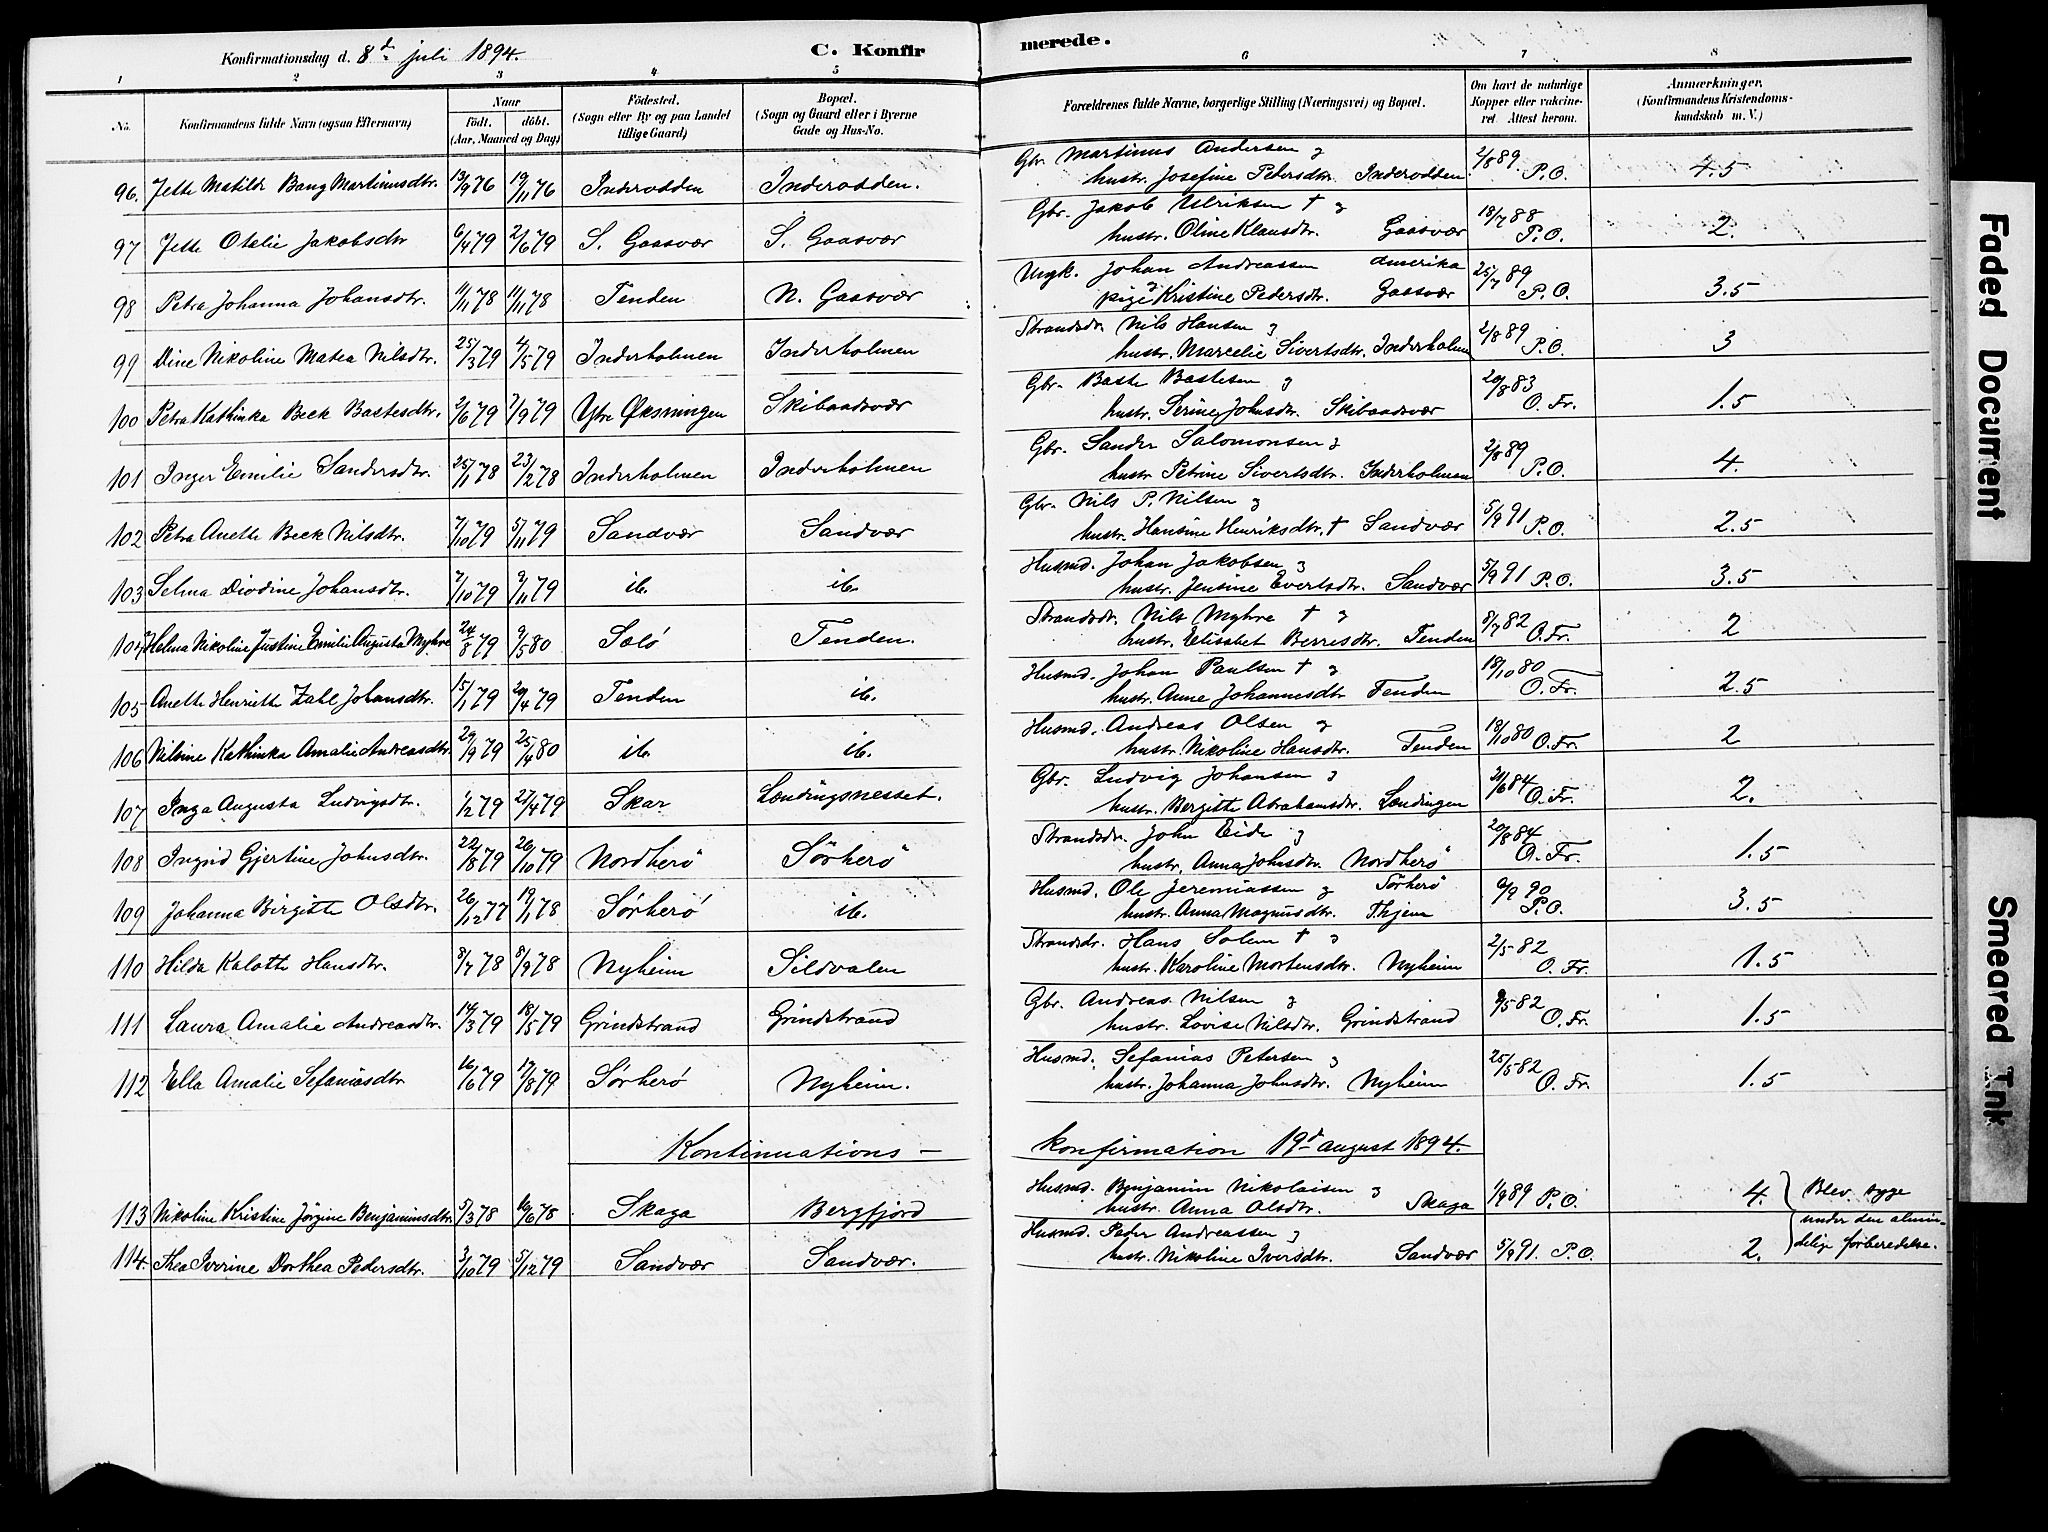 Konfirmationsdag d. 8d juli 1894. C. Konfir merede.
1 2 3 4 5 6 7 8
No. Konfirmandens fulde Navn (ogsaa Efternavn) Naar födt. döbt. (Aar, Maaned og Dag) Födested. (Sogn eller By og paa Landet tillige Gaard) Bopæl. (Sogn og Gaard eller i Byerne Gade og Hus-No. Forældrenes fulde Navne, borgerlige Stilling (Næringsvei) og Bopæl. Om havt de naturlige Kopper eller vakcineret. Attest herom. Anmærkninger. (Konfirmandens Kristendomskundskab m. V.)
96. Jette Matilde Bang Martinusdtr. 13/9 76 19/11 76 Inderodden Inderodden. Gbr. Martinus Andersen og 2/8 89
hustr. Josefine Petersdtr. Inderodden P.O. 4.5
97 Jette Otelie Jakobsdtr 6/4 79 2/6 79 S. Gaasvær S. Gaasvær Gbr. Jakob Ulriksen † og 18/7 88
hustr. Oline Klausdtr. Gaasvær P.O. 2.
98 Petra Johanna Johansdtr. 11/1 78 11/11 78 Tenden N. Gaasvær Ungk. Johan Andreassen Amerika 25/7 89
pige Kristine Pedersdtr. Gaasvær P.O. 3.5
99 Dine Nikoline Matea Nilsdtr. 25/3 79 4/5 79 Inderholmen Inderholmen Strandsdr. Nils Hansen og 2/8 89
hustr. Marcelie Sivertsdtr. Inderholmen P.O. 3
100 Petra Kathinka Beck Bastesdtr. 2/6 79 7/9 79 Ytre Øksningen Skibaadsvær Gbr. Baste Bastesen og 20/8 83
hustr. Serine Johnsdtr. Skibaadsvær O. Fr. 1.5
101 Inger Emilie Sandersdtr. 25/1 78 23/2 78 Inderholmen Inderholmen Gbr. Sander Salomonsen og 2/8 89
hustr. Petrine Sivertsdtr. Inderholmen P.O. 4.
102 Petra Anette Beck Nilsdtr. 7/10 79 5/11 79 Sandvær Sandvær Gbr. Nils P. Nilsen og 5/9 91
hustr. Hansine Henriksdtr. † Sandvær P.O. 2.5
103 Selma Diodine Johansdtr. 7/10 79 9/11 79 ib. ib. Husmd. Johan Jakobsen og 5/9 91 P.O.
hustr. Jensine Evertsdtr. Sandvær 3.5
104 Helma Nikoline Justine Emilie Augusta Myhre 24/8 79 9/5 80 Solö Tenden. Strandsdr. Nils Myhre † og 8/7 82
hustr. Elisabet Berresdtr. Tenden O. Fr. 2
105 Anette Henriette Zahl Johansdtr. 15/1 79 20/4 79 Tenden ib. Husmd. Johan Paulsen † og 18/10 80
hustr. Anne Johannesdtr Tenden O. Fr. 2.5
106 Nilsine Kathinka Amalie Andreasdtr. 29/9 79 25/4 80 ib. ib. Husmd. Andreas Olsen og 18/10 80
hustr. Nikoline Hansdtr. Tenden O. Fr. 2
107 Inga Augusta Ludvigsdtr. 1/2 79 27/4 79 Skar Lændingsnesset. Gbr. Ludvig Johansen og 21/6 84
hustr. Bergitte Abrahamsdtr. Lændingen O. Fr. 2.
108 Ingrid Gjertine Johnsdtr. 22/8 79 26/10 79 Nordherö Sörherö Strandsdr. John Eide og 20/8 84
hustr. Anna Johnsdtr. Nordherö O. Fr. 1.5
109 Johanna Birgitte Olsdtr. 26/12 77 19/1 78 Sörherö ib. Husmd. Ole Jeremiassen og Sörherö 6/9 90
hustr. Anna Magnusdtr. Thjem P.O. 3.5
110 Hilda Kalotte Hansdtr. 8/7 78 8/9 78 Nyheim Sildvalen Strandsdr. Hans Solem † og 2/5 82
hustr. Karoline Mortensdtr. Nyheim O. Fr. 1.5
111 Laura Amalie Andreasdtr. 14/3 79 18/5 79 Grindstrand Grindstrand Gbr. Andreas Nilsen og 9/5 82
hustr. Lovise Nilsdtr. Grindstrand O. Fr. 1.5
112 Ella Amalie Sefaniasdtr 16/6 79 17/8 79 Sörherö Nyheim. Husmd. Sefanias Petersen og 25/5 82
hustr. Johanna Johnsdtr. Nyheim O. Fr. 1.5
Kontinuations - konfirmation 19d august 1894.
113 Nikoline Kristine Jörgine Benjaminsdtr 5/3 78 10/6 78 Skaga Bergfjord Husmd. Benjamin Nikolaisen og 1/9 89 P.O. 4. Blev syge
hustr. Anna Olsdtr. Skaga under den almin-
114. Thea Iverine Dorthea Pedersdtr. 3/10 79 5/12 79 Sandvær Sandvær. Husmd. Peder Andreassen og delige forberedelse.
hustr. Nikoline Iversdtr. Sandvær 5/9 91. P.O. 2.
Faded Document
Smeared Ink